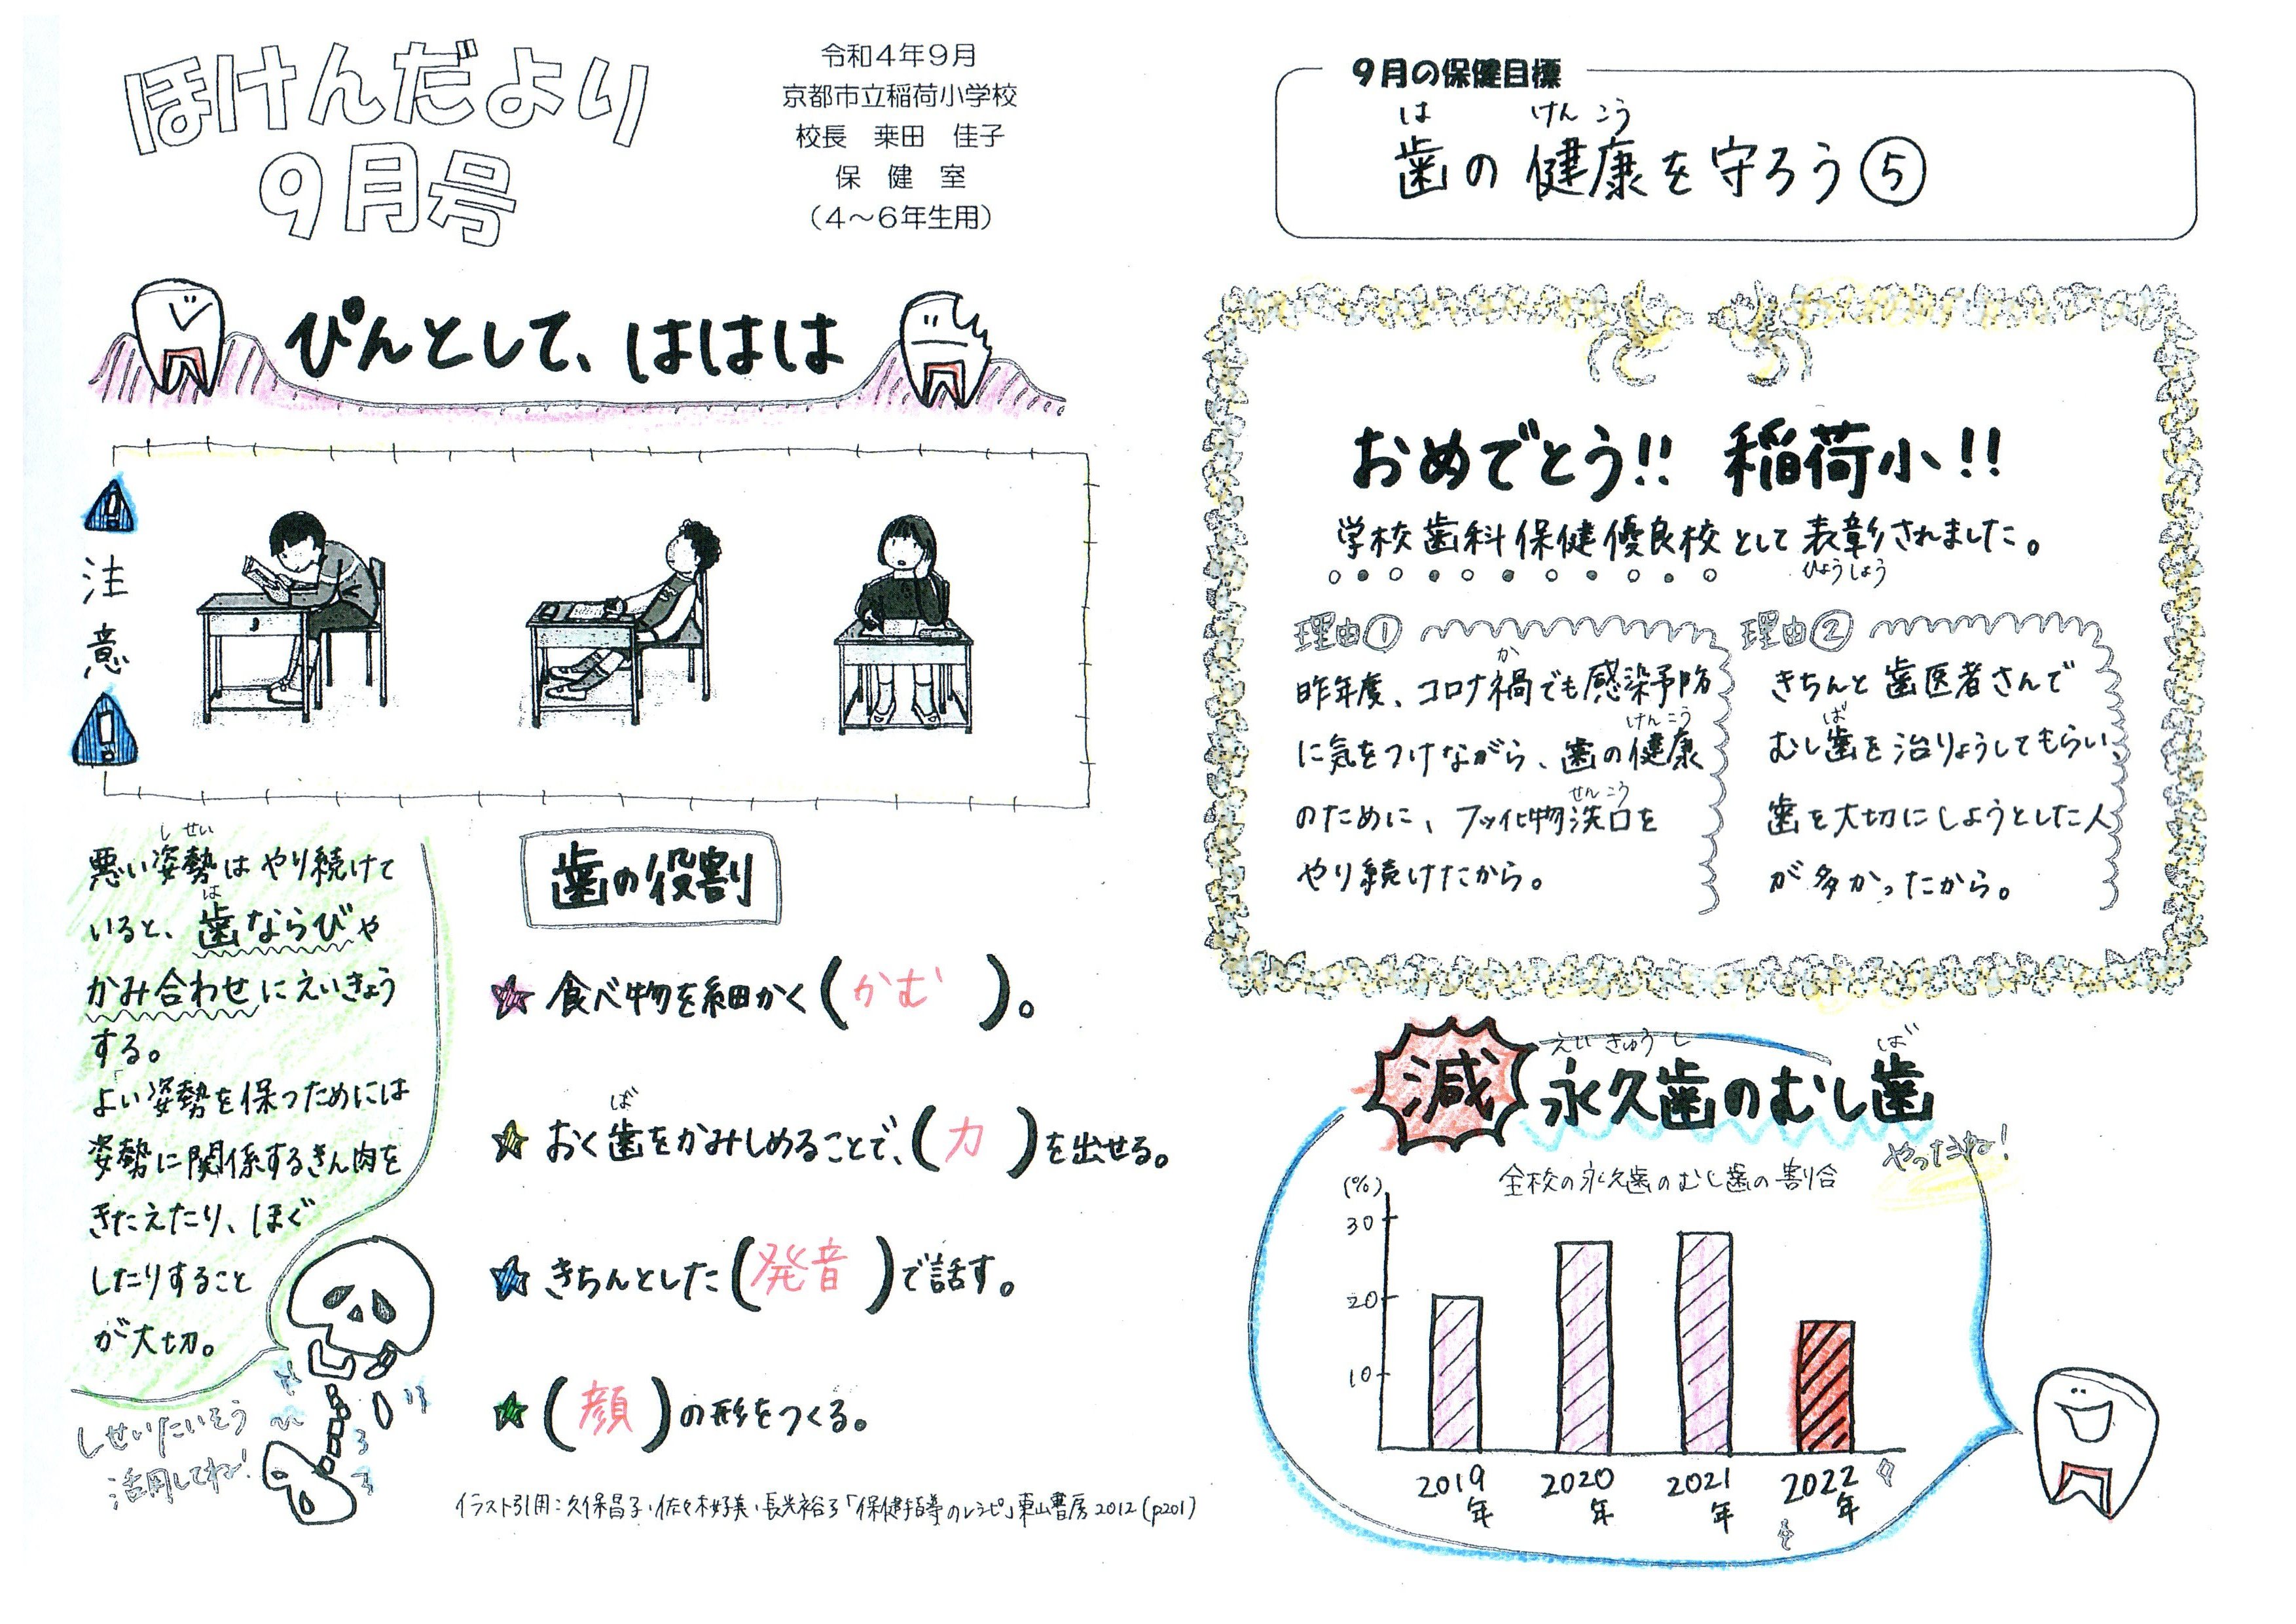 ほけんだより
9月号
令和4年9月
京都市立稲荷小学校
校長　乗田　佳子
保　健　室
(4～6年生用)
ぴんとして、ははは
注意
悪い姿勢はやり続けて
しせい
いると、歯ならびや
は
かみ合わせにえいきょう
する。
よい姿勢を保つためには
姿勢に関係するきん肉を
きたえたり、ほぐ
したりすること
が大切。
しせいたいそう
活用してね!
歯の役割
★食べ物を細かく(かむ)。
★おく歯をかみしめることで、(力)を出せる。
ば
★きちんとした(発音)で話す。
★(顔)の形をつくる。
イラスト引用:久保昌子・佐々木好美・長光裕子「保健指導のレシピ」東山書房2012(p201)
9月の保健目標
は　けんこう
歯の健康を守ろう⑤
おめでとう!! 稲荷小!!
学校歯科保健優良校として表彰されました。
ひょうしょう
理由①
か
昨年度、コロナ禍でも感染予防
けんこう
に気をつけながら、歯の健康
せんこう
のために、フッ化物洗口を
やり続けたから。
理由②
きちんと歯医者さんで
ば
むし歯を治りょうしてもらい、
歯を大切にしようとした人
が多かったから。
えいきゅうし　ば
減 永久歯のむし歯
やったね!
全校の永久歯のむし歯の割合
(%)
30
20
10
2019年
2020年
2021年
2022年